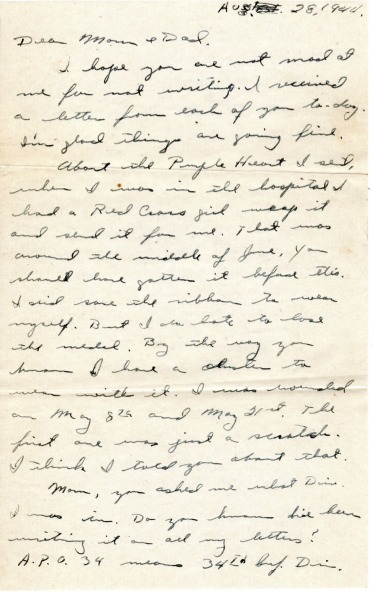 Aug. 28, 1944.
Dear Mom & Dad.
I hope you are not mad at
me for not writing. I received
a letter from each of you to-day.
I'm glad things are going fine.
About the Purple Heart I sent,
when I was in the hospital I
had a Red Cross girl wrap it
and send it for me. That was
around the middle of June, you
should have gotten it before this.
I did save the ribbon to wear
myself. But I do hate to lose
the medal. By the way you
know I have a cluster to
wear with it. I was wounded
on May 8th and May 31st. The
first one was just a scratch.
I think I told you about that.
Mom, you asked me what Div.
I was in. Do you know I've been
writing it on all my letters?
A.P.O. 34 means 34th Inf. Div.